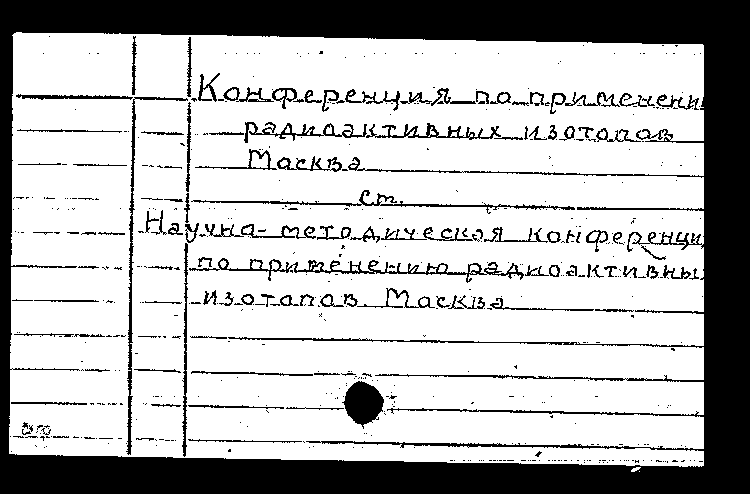 Конференция по применени
радиоактивных изотопов
Москва
ст.
Научно-методическая конференци
по применению радиоактивны
изотопов. Москва